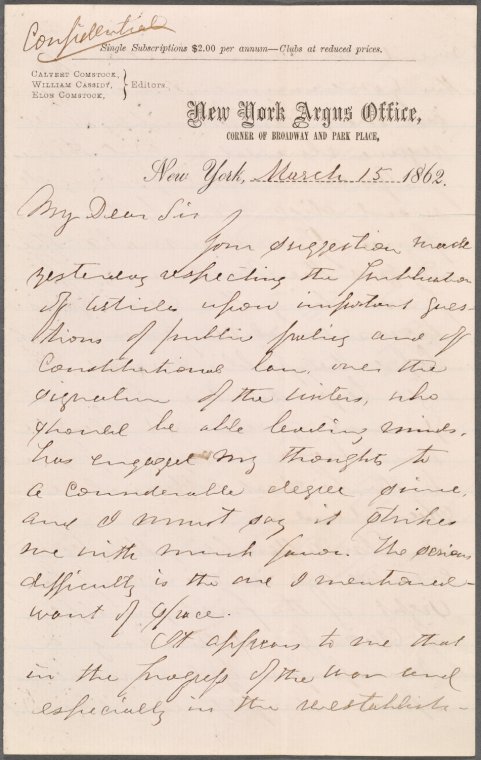 Confidential
Single Subscriptions $2.00 per annum—Clubs at reduced prices.
CALVERT COMSTOCK,
WILLIAM CASSIDY,
ELON COMSTOCK,
} Editors.
New York Argus Office,
CORNER OF BROADWAY AND PARK PLACE,
New York, March 15 1862.
My Dear Sir
Your suggestion made
yesterday respecting the publication
of articles upon important ques-
tions of public policy and of
Constitutional law, over the
signature of the writers, who
should be able leading minds,
has engaged my thoughts to
a considerable degree since,
and I must say it strikes
me with much favor. The serious
difficulty is the one I mentioned -
want of space.
It appears to me that
in the progress of the war and
especially in the reestablish-